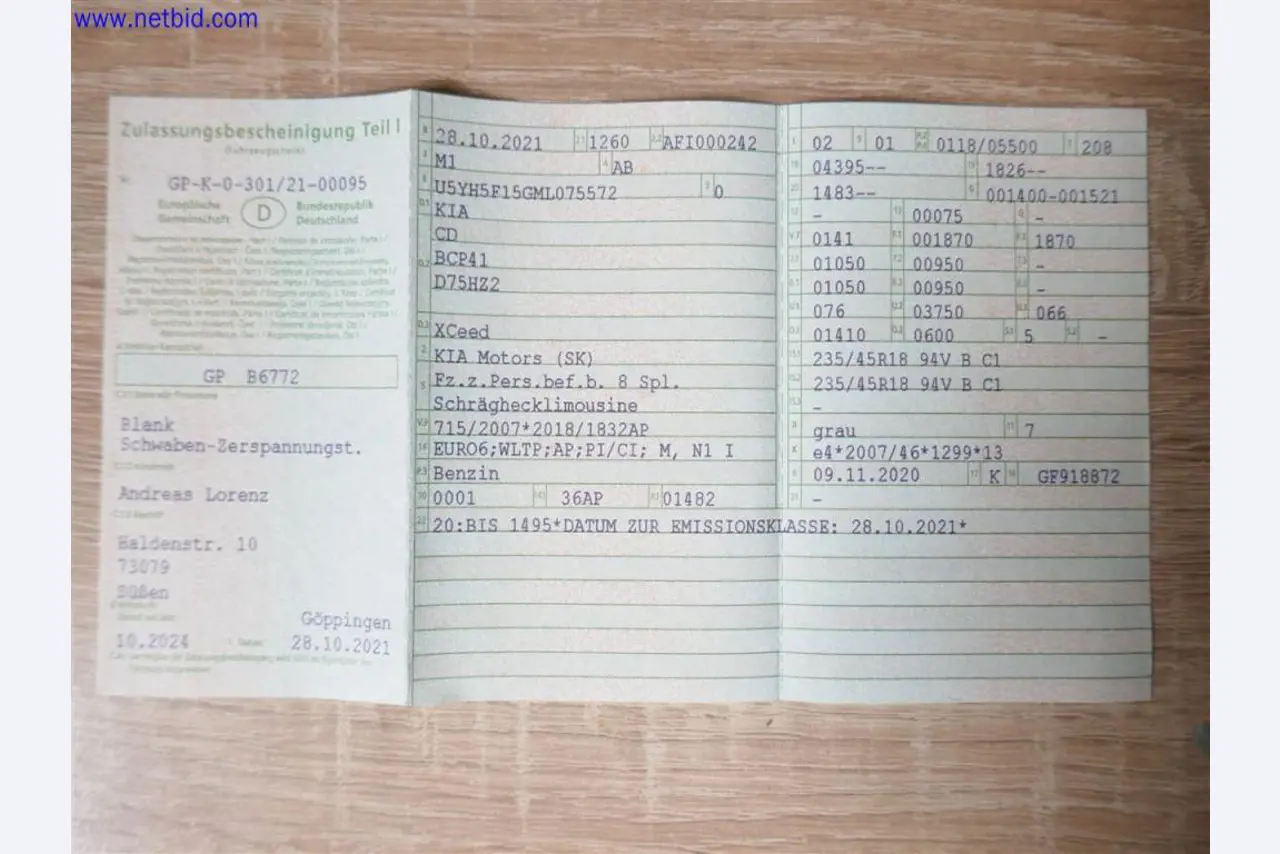 www.netbid.com
Zulassungsbescheinigung Teil I
(Fahrzeugschein)
Nr. GP-K-0-301/21-00095
Europäische Gemeinschaft D Bundesrepublik Deutschland
GP B6772
Blank
Schwaben-Zerspannungst.
Andreas Lorenz
Haldenstr. 10
73079
Süßen
Göppingen
10.2024 28.10.2021
B 28.10.2021 2.1 1260 2.2 AFI000242
J M1 4 AB
E U5YH5F15GML075572 3 0
D.1 KIA
CD
D.2 BCP41
D75HZ2
D.3 XCeed
2 KIA Motors (SK)
5 Fz.z.Pers.bef.b. 8 Spl.
Schräghecklimousine
V.9 715/2007*2018/1832AP
14 EURO6;WLTP;AP;PI/CI; M, N1 I
P.3 Benzin
10 0001 14.1 36AP P.1 01482
22 20:BIS 1495*DATUM ZUR EMISSIONSKLASSE: 28.10.2021*
L 02 9 01 P.2 P.4 0118/05500 T 208
18 04395-- 19 1826--
20 1483-- G 001400-001521
12 - 13 00075 Q -
V.7 0141 F.1 001870 F.2 1870
7.1 01050 7.2 00950 7.3 -
8.1 01050 8.2 00950 8.3 -
U.1 076 U.2 03750 U.3 066
O.1 01410 O.2 0600 S.1 5 S.2 -
15.1 235/45R18 94V B C1
15.2 235/45R18 94V B C1
15.3 -
R grau 11 7
K e4*2007/46*1299*13
6 09.11.2020 17 K 16 GF918872
21 -